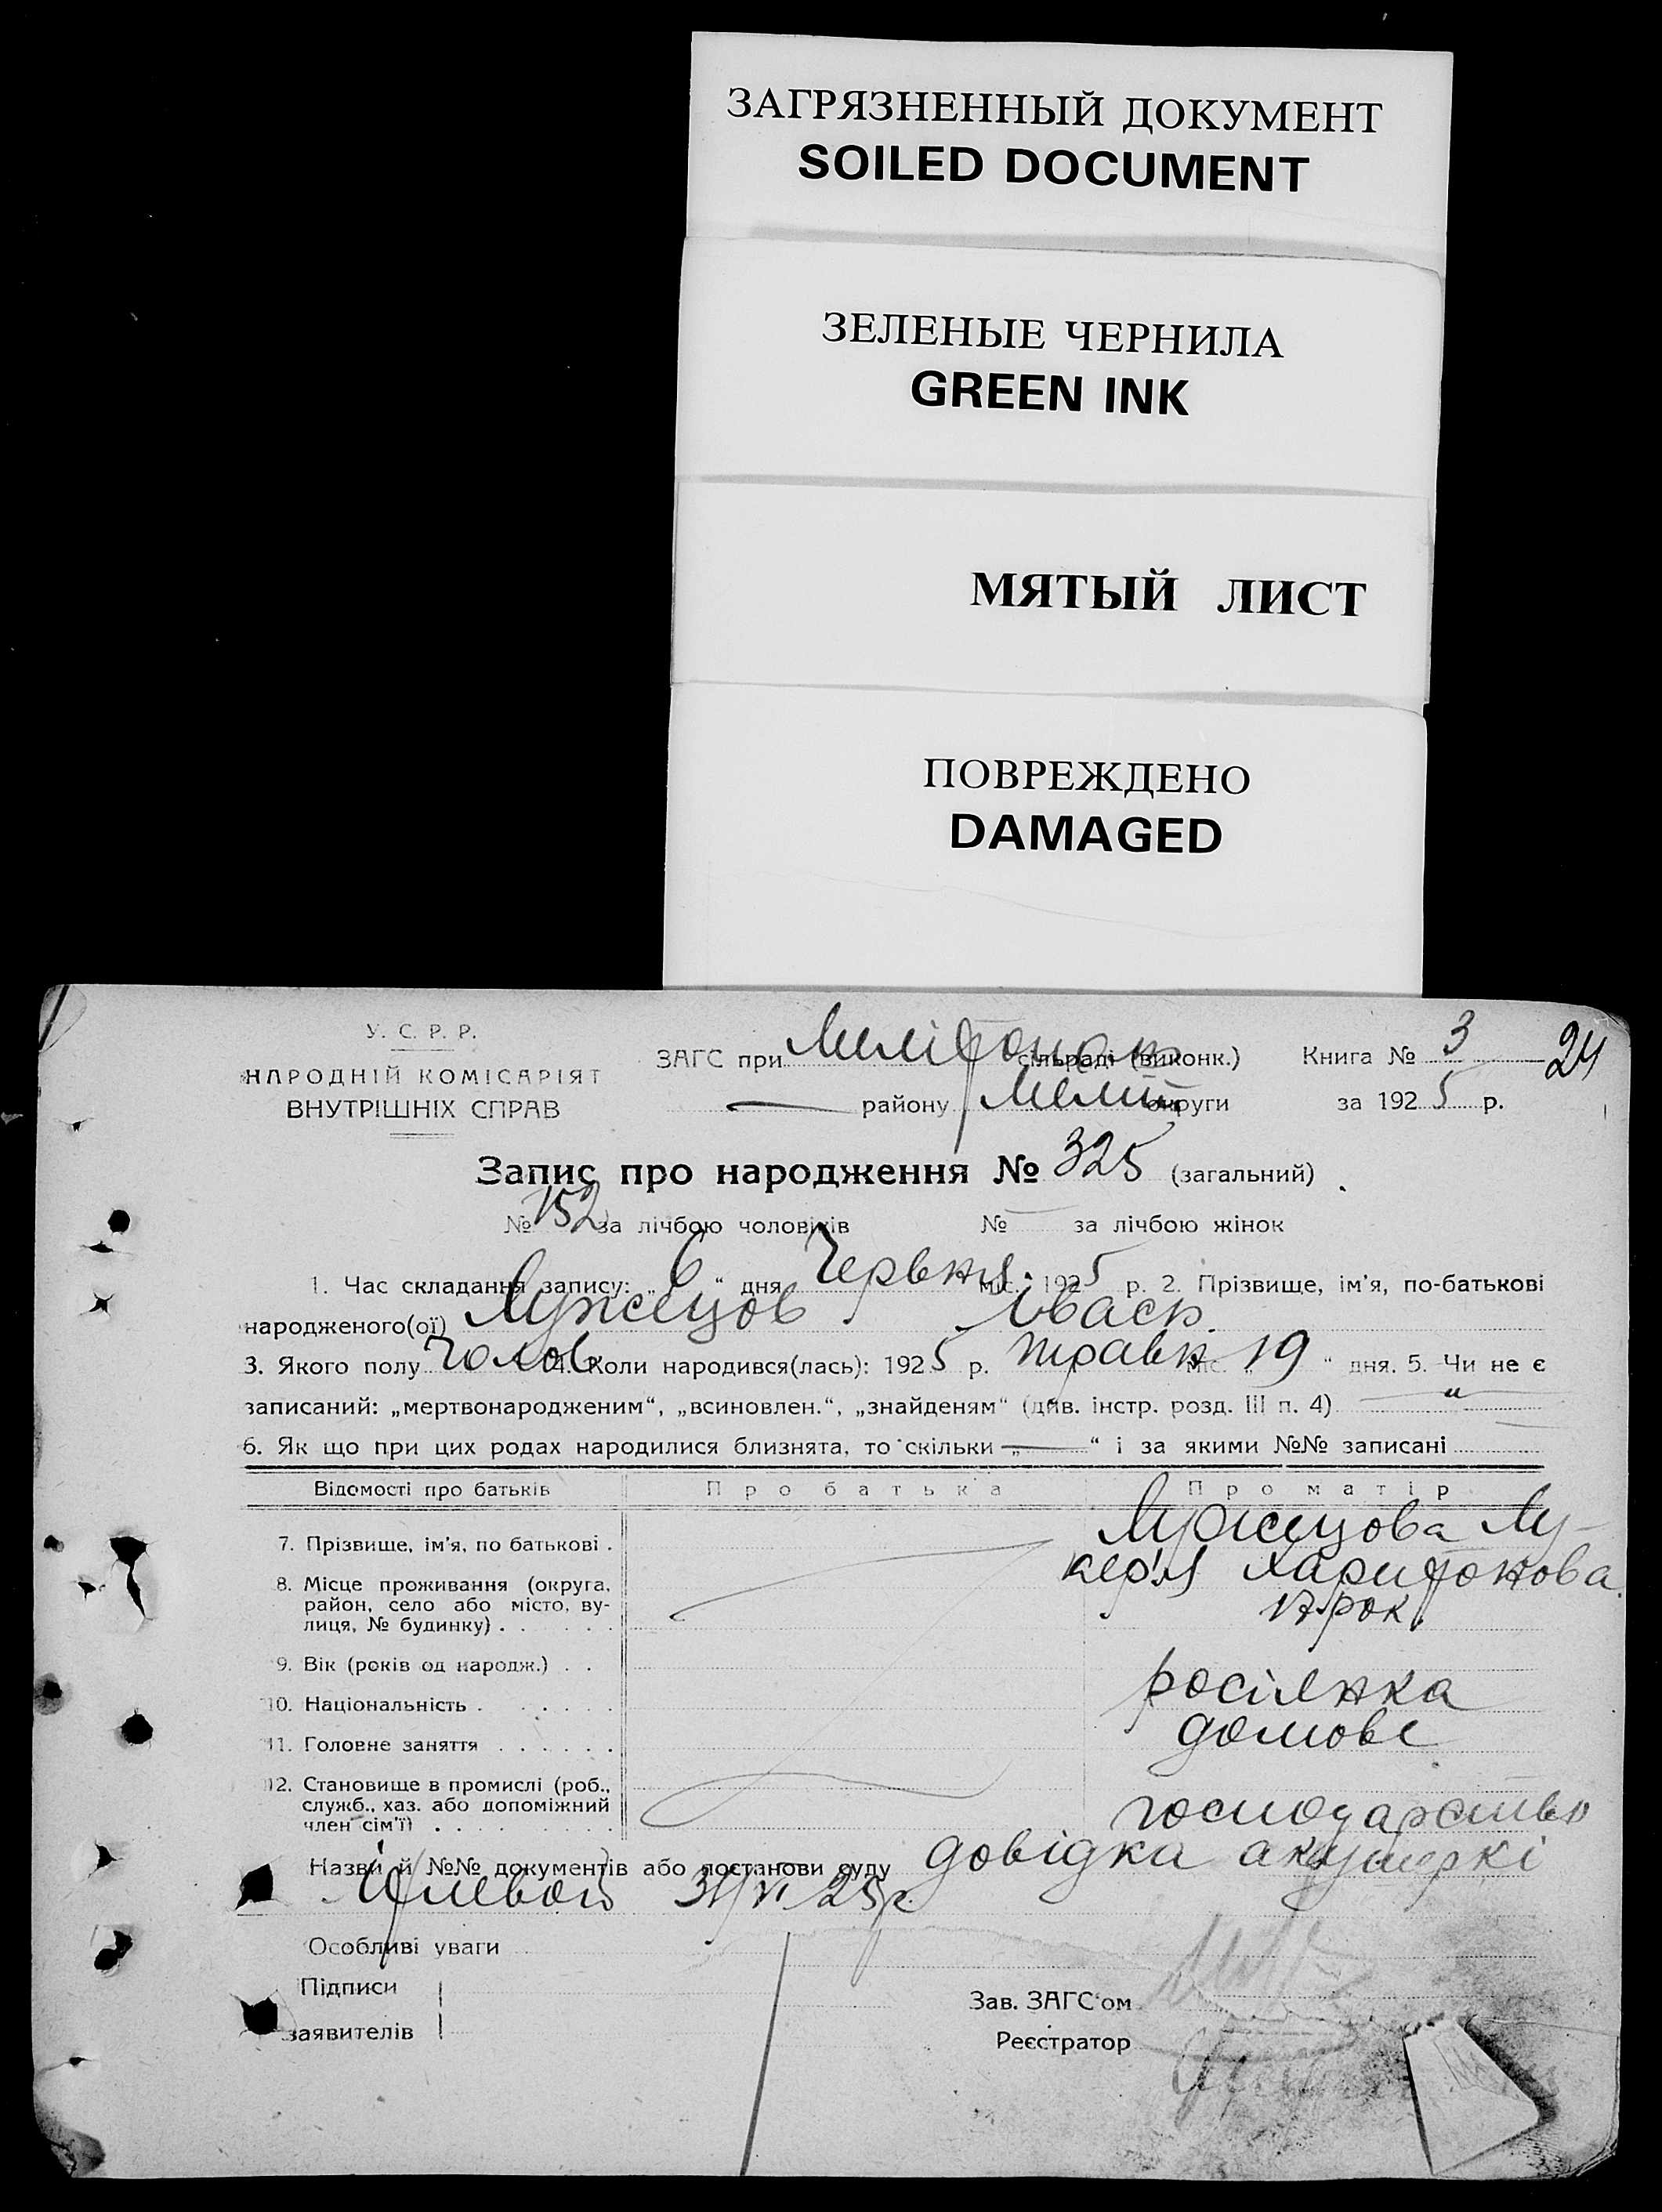 ЗАГРЯЗНЕННЫЙ ДОКУМЕНТ
SOILED DOCUMENT
ЗЕЛЕНЫЕ ЧЕРНИЛА
GREEN INK
МЯТЫЙ ЛИСТ
ПОВРЕЖДЕНО
DAMAGED
У. С. Р. Р.
НАРОДНІЙ КОМІСАРІЯТ
ВНУТРІШНІХ СПРАВ
ЗАГС при сільраді (виконк.) Книга № 3 24
— району Меліт округи за 1925 р.
Запис про народження № 325 (загальний)
№ 152 за лічбою чоловіків № — за лічбою жінок
1. Час складання запису: „6“ дня Червня міс. 1925 р. 2. Прізвище, ім'я, по-батькові
народженого(ої)
3. Якого полу Чолов 4. Коли народився(лась): 1925 р. травн міс. „19“ дня. 5. Чи не є
записаний: „мертвонародженим“, „всиновлен.“, „знайденям“ (див. інстр. розд. III п. 4) — " —
6. Як що при цих родах народилися близнята, то скільки „—“ і за якими №№ записані
Відомості про батьків Про батька Про матір
7. Прізвище, ім'я, по батькові . Лужецова Лу-
кер'я Харитонова
8. Місце проживання (округа,
район, село або місто, ву-
лиця, № будинку) . . . . . .
рок
9. Вік (років од народж.) . .
10. Національність . . . . . . росіянка
11. Головне заняття . . . . . . домове
12. Становище в промислі (роб.,
служб., хаз. або допоміжний
член сім'ї) . . . . . . . . . господарство
Назви й №№ документів або постанови суду довідка акушеркі
Особливі уваги
Підписи
заявителів
Зав. ЗАГС'ом
Реєстратор